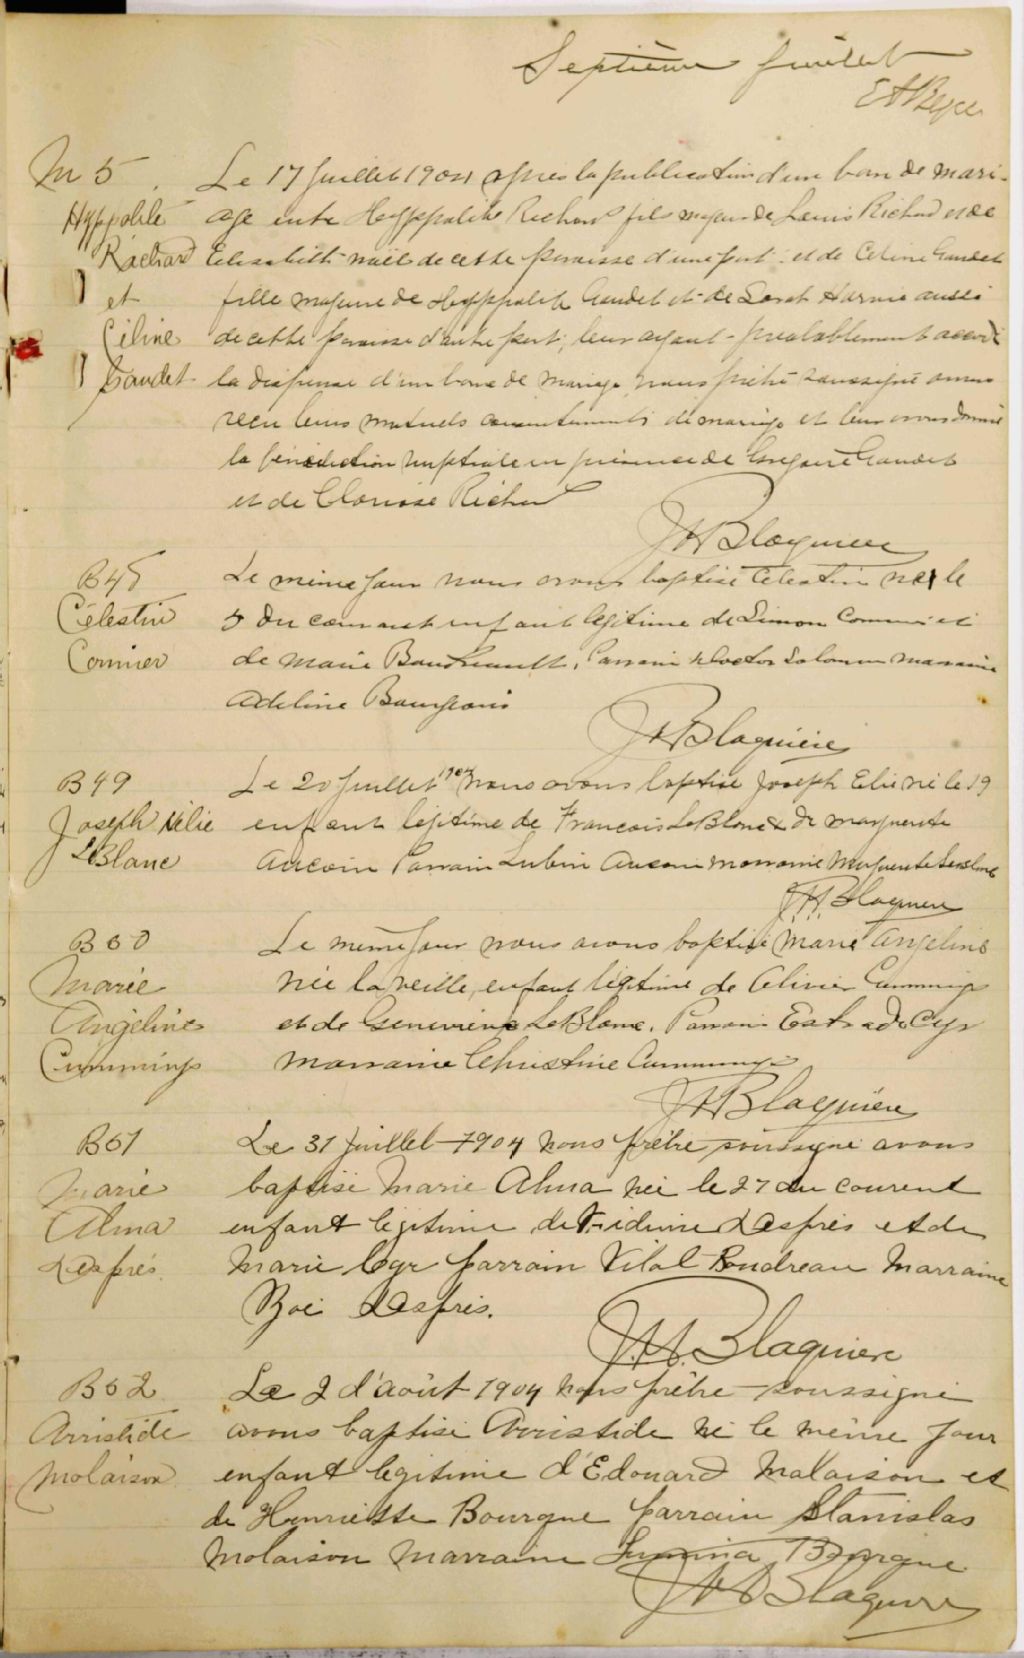 Septième feuillet
M 5
Hyppolite
Richard
et
Céline
Gaudet
Le 17 Juillet 1904 après la publication d'un ban de mari-
age entre Hyppolite Richard fils majeur de Louis Richard et de
Elisabeth de cette paroisse d'une part et de Celine Gaudet
fille majeure de Hyppolite Gaudet et de aussi
de cette paroisse d'autre part, leur ayant préalablement accordé
la dispense d'un bans de mariage nous prêtre soussigné avons
recu leurs mutuels consentements de mariage et leur avons donné
la bénédiction nuptiale en présence de Grégoire Gaudet
et de Clarisse Richard
J H Blaquiere
B 48
Célestin
Cormier
Le même jour nous avons baptisé Célestin né le
5 du courant enfant légitime de Simon Cormier et
de Marie Boudreault. Parrain marraine
Adeline Bourgeois
J H Blaquière
B 49
Joseph Hélie
LeBlanc
Le 20 Juillet 1904 nous avons baptisé Joseph Elie né le 19
enfant légitime de François LeBlanc & de Marguerite
Aucoin Parrain Lubin Aucoin marraine Marguerite
J. H. Blaquiere
B 50
Marie
Angéline
Cummings
Le même jour nous avons baptisé Marie Angeline
née la veille, enfant légitime de Olivier Cummings
et de Geneviève LeBlanc. Parrain Cyr
marraine Christine Cummings
J H Blaquière
B 51
Marie
Alma
Després
Le 31 Juillet 1904 nous prêtre soussigné avons
baptisé Marie Alma née le 27 du courent
enfant legitime de Després et de
Marie Cyr parrain Vital Boudreau Marraine
Zoé Després.
J. H. Blaquiere
B 52
Arristide
Molaison
Le 2 d'août 1904 nous prêtre soussigné
avons baptisé Arristide né le même jour
enfant legitime d'Edouard Malaison et
de Henriette Bourque parrain Stanislas
Molaison Marraine Bourque
J H Blaquiere